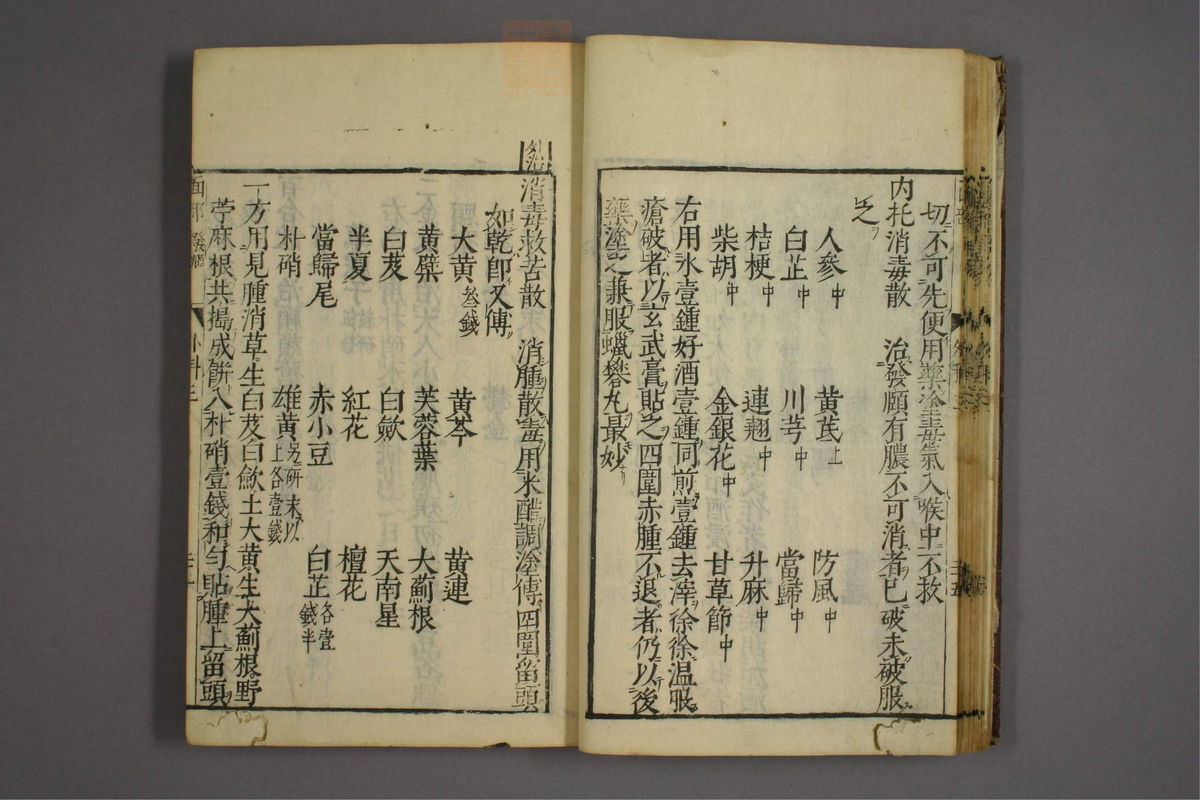 切不可先便用藥塗毒氣入喉中不救
内托消毒散　治發頤有膿不可消者已破未破服
之
人參中　黃芪上　防風中
白芷中　川芎中　當歸中
桔梗中　連翹中　升麻中
柴胡中　金銀花中　甘草節中
右用水壹鍾好酒壹鍾同煎壹鍾去滓徐徐温服
瘡破者以玄武膏貼之四圍赤腫不退者仍以後
藥塗之兼服蠟礬丸最妙
消毒救苦散　消腫散毒用米醋調塗傅四圍留頭
如乾即又傅
大黃叁錢　黃芩　黃連
黃檗　芙蓉葉　大薊根
白芨　白歛　天南星
半夏　紅花　檀花
當歸尾　赤小豆　白芷各壹錢半
朴硝　雄黃另研末以上各壹錢
一方用見腫消草生白芨白歛土大黃生大薊根野
苧麻根共搗成餅入朴硝壹錢和勻貼腫上留頭
面部